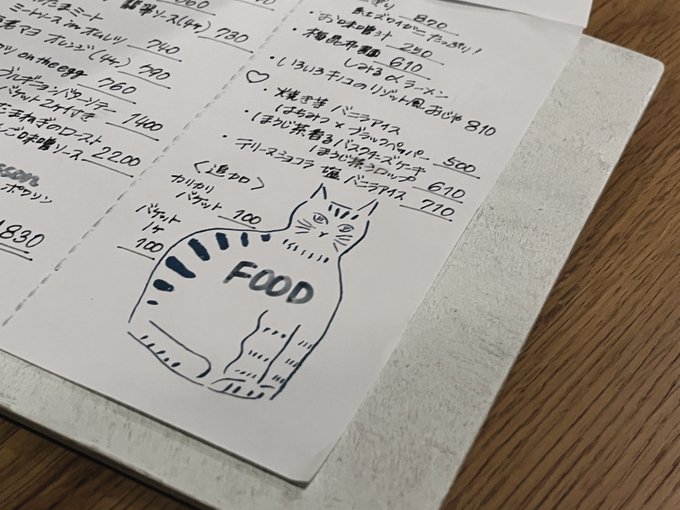 ミート
ミートソース in オムレツ 740
マヨ オレンジ(4ヶ) 490
on the egg 760
ブルギニョンバターソテー
バゲット2ケ付き 1400
たまねぎのロースト
味噌ソース 2200
ポワソン
1830
060
ソース(4ヶ) 730
800
紅ズワイガニたっぷり!
・お味噌汁 250
・梅昆布麺 610
しみるのラーメン
♡・いろいろキノコのリゾット風おじや 810
・焼き芋 バニラアイス
はちみつ×ブラックペッパー 500
・ほうじ茶香るバスクチーズケーキ
ほうじ茶シロップ 610
・テリーヌショコラ 塩 バニラアイス 710
<追加>
カリカリ
バゲット 100
バゲット
1ヶ
100
FOOD